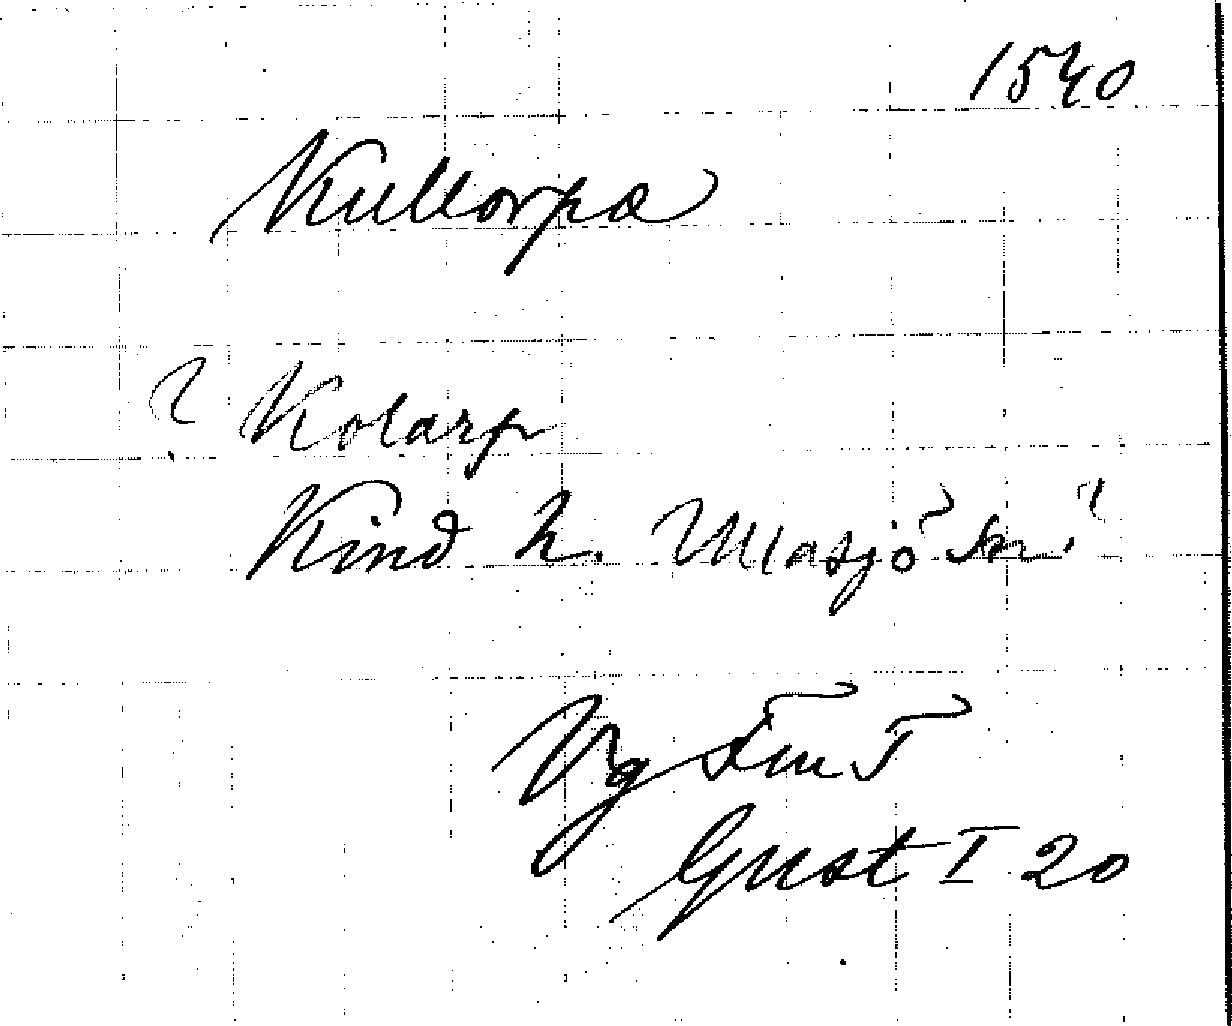 1540
Kullorpa
? Kolarp
Kind h. Mlasjö sn?
Vg Tm T
Gust I 20